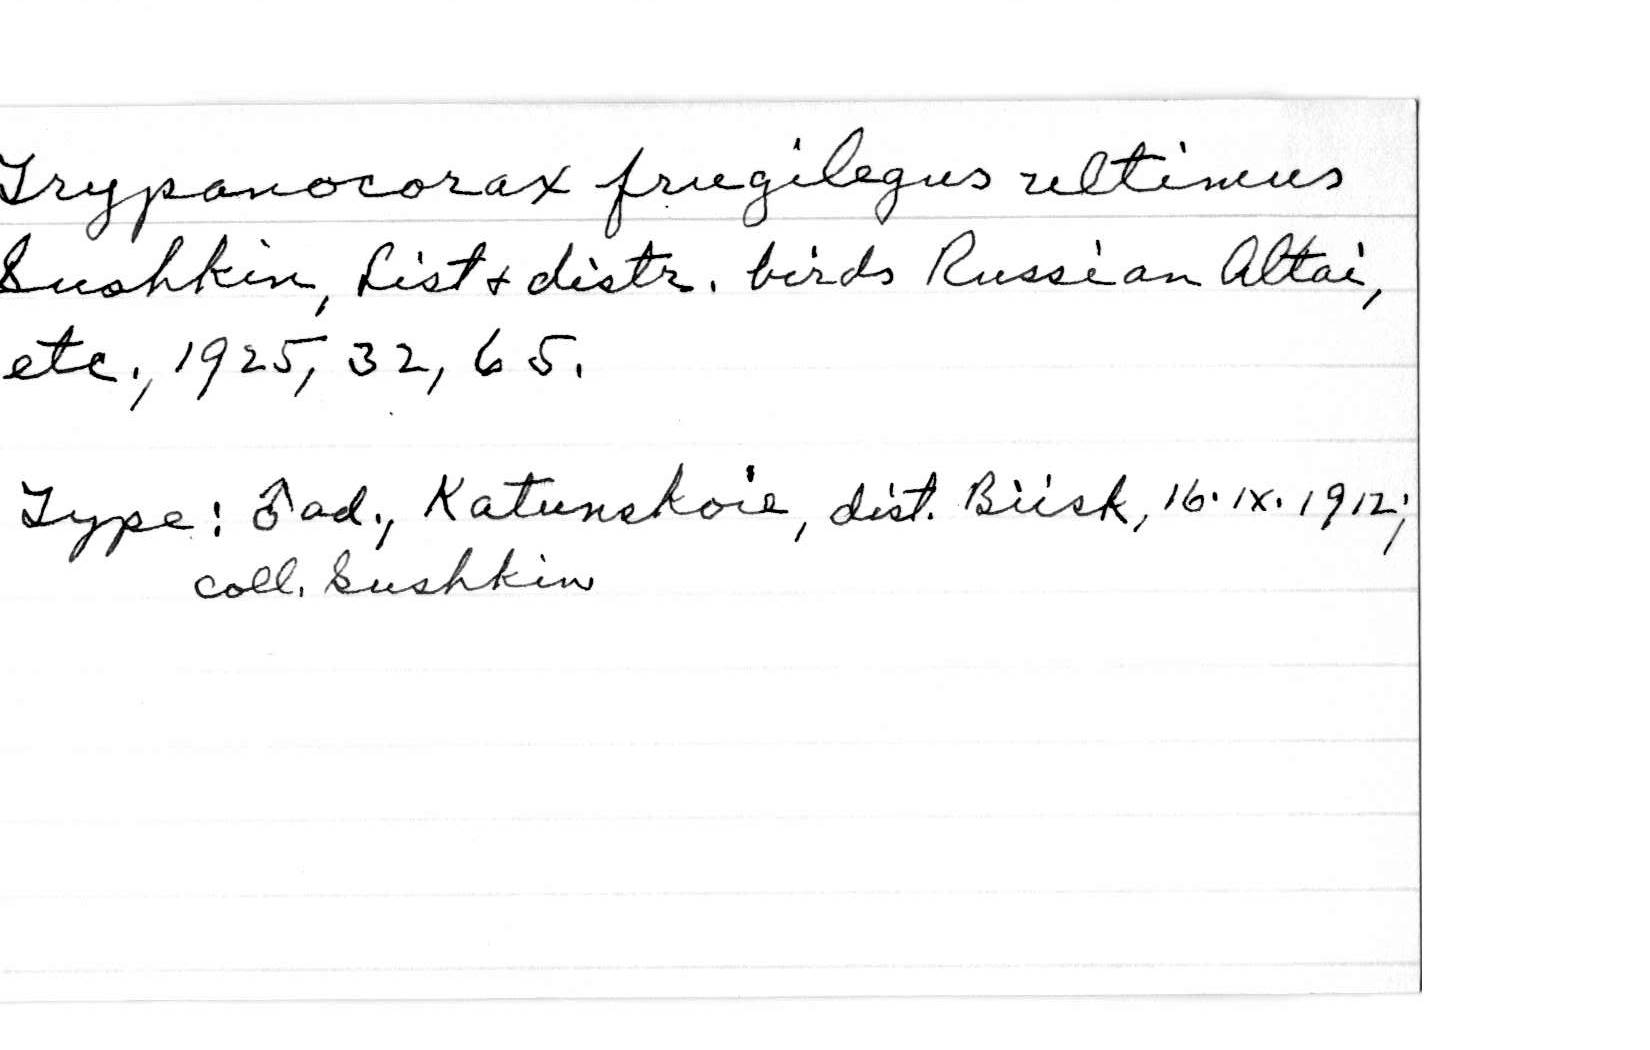 Trypanocorax frugilegus ultimus
Sushkin, List + distr. birds Russian Altai,
etc., 1925, 32, 65.
Type: ♂ ad., Katunskoie, dist. Biisk, 16.IX.1912;
coll. Sushkin